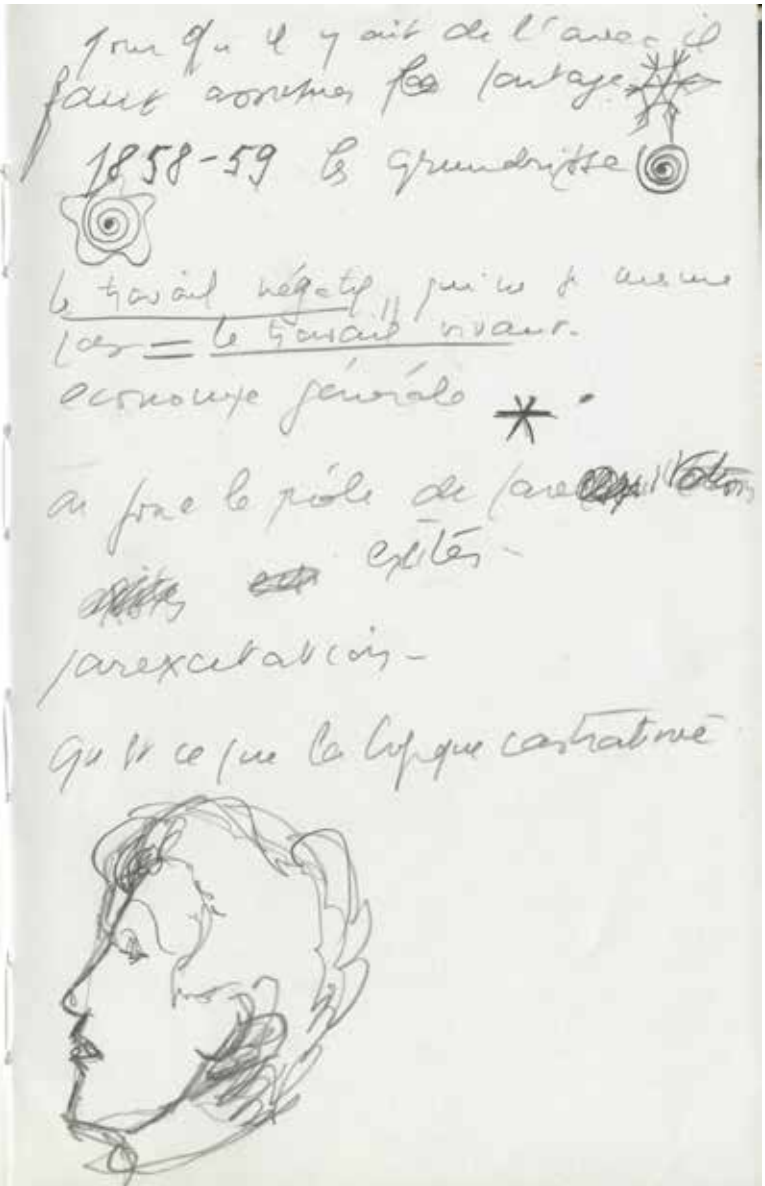 pour qu'il y ait de l'avec il
faut assumer le partage
1858-59 les grundrisse
le travail négatif, qui ne se mesure
pas = le travail vivant.
économie générale
on joue le rôle de
excités -
parexcitation -
Qu'est ce que la logique castratrice